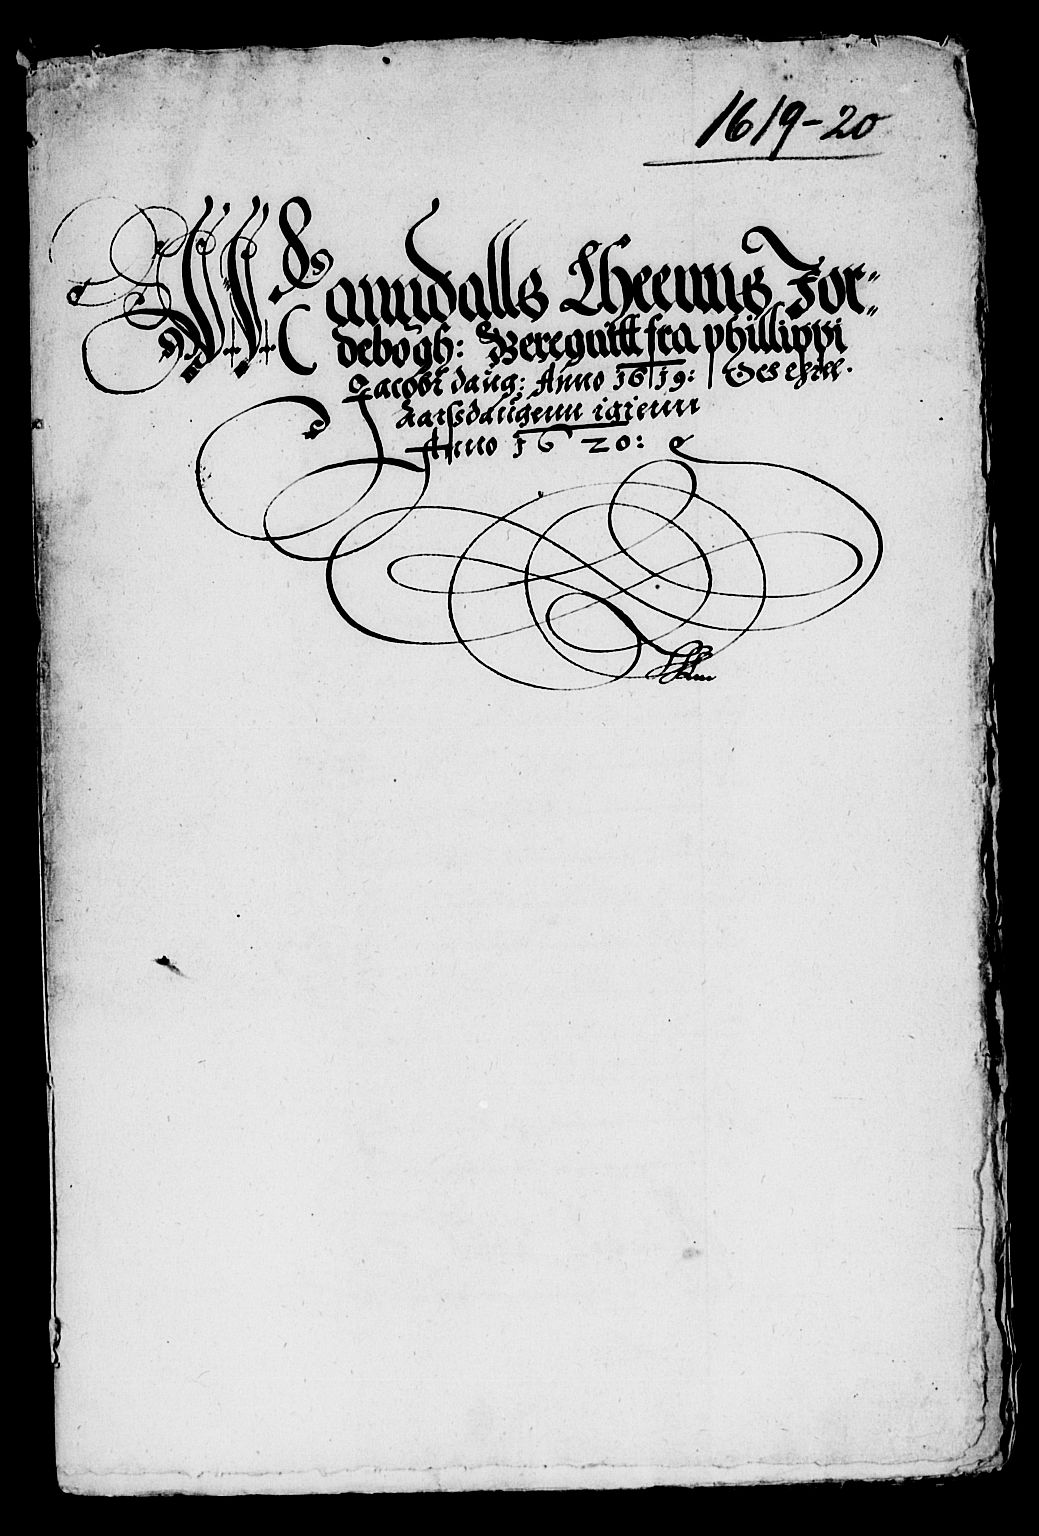 1619-20
Manndalls Lheenns Jor-
debogh: Beregnitt fra phillippi
Jacobi daug: Anno 1619: Och
Aarssdaugenn igienn
Anno 1620: